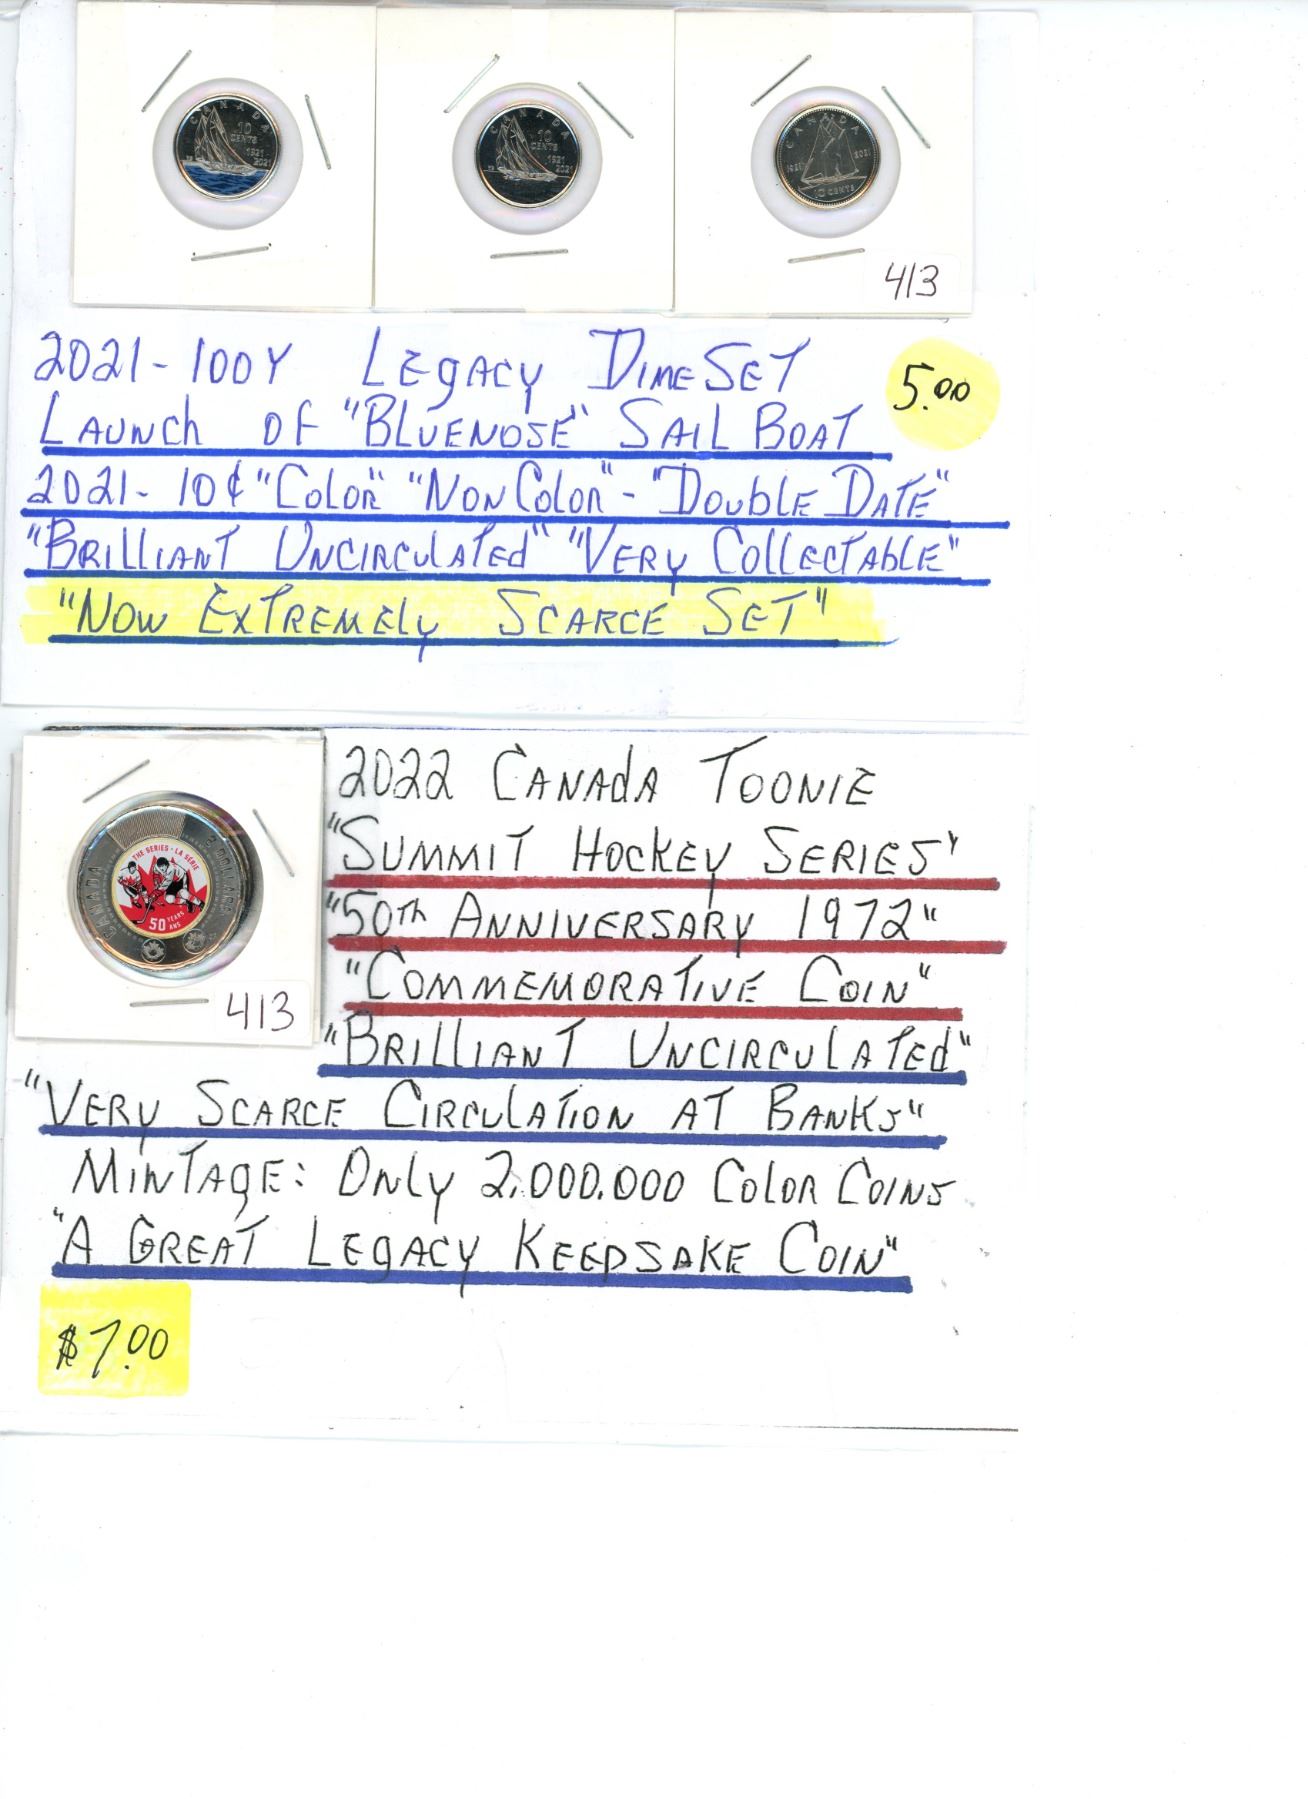 CANADA 10 CENTS 1921 2021
CANADA 10 CENTS 1921 2021
CANADA 1921 2021 10 CENTS
413
2021-100Y LEGACY DIME SET
5.00
LAUNCH OF "BLUENOSE" SAIL BOAT
2021- 10¢ "COLOR" "NON COLOR" - "DOUBLE DATE"
"BRILLIANT UNCIRCULATED" "VERY COLLECTABLE"
"NOW EXTREMELY SCARCE SET"
2022 CANADA TOONIE
"SUMMIT HOCKEY SERIES"
"50th ANNIVERSARY 1972"
"COMMEMORATIVE COIN"
CANADA 2 DOLLARS
THE SERIES · LA SÉRIE
50 YEARS ANS
413
"BRILLIANT UNCIRCULATED"
"VERY SCARCE CIRCULATION AT BANKS"
MINTAGE: ONLY 2,000.000 COLOR COINS
"A GREAT LEGACY KEEPSAKE COIN"
$7.00